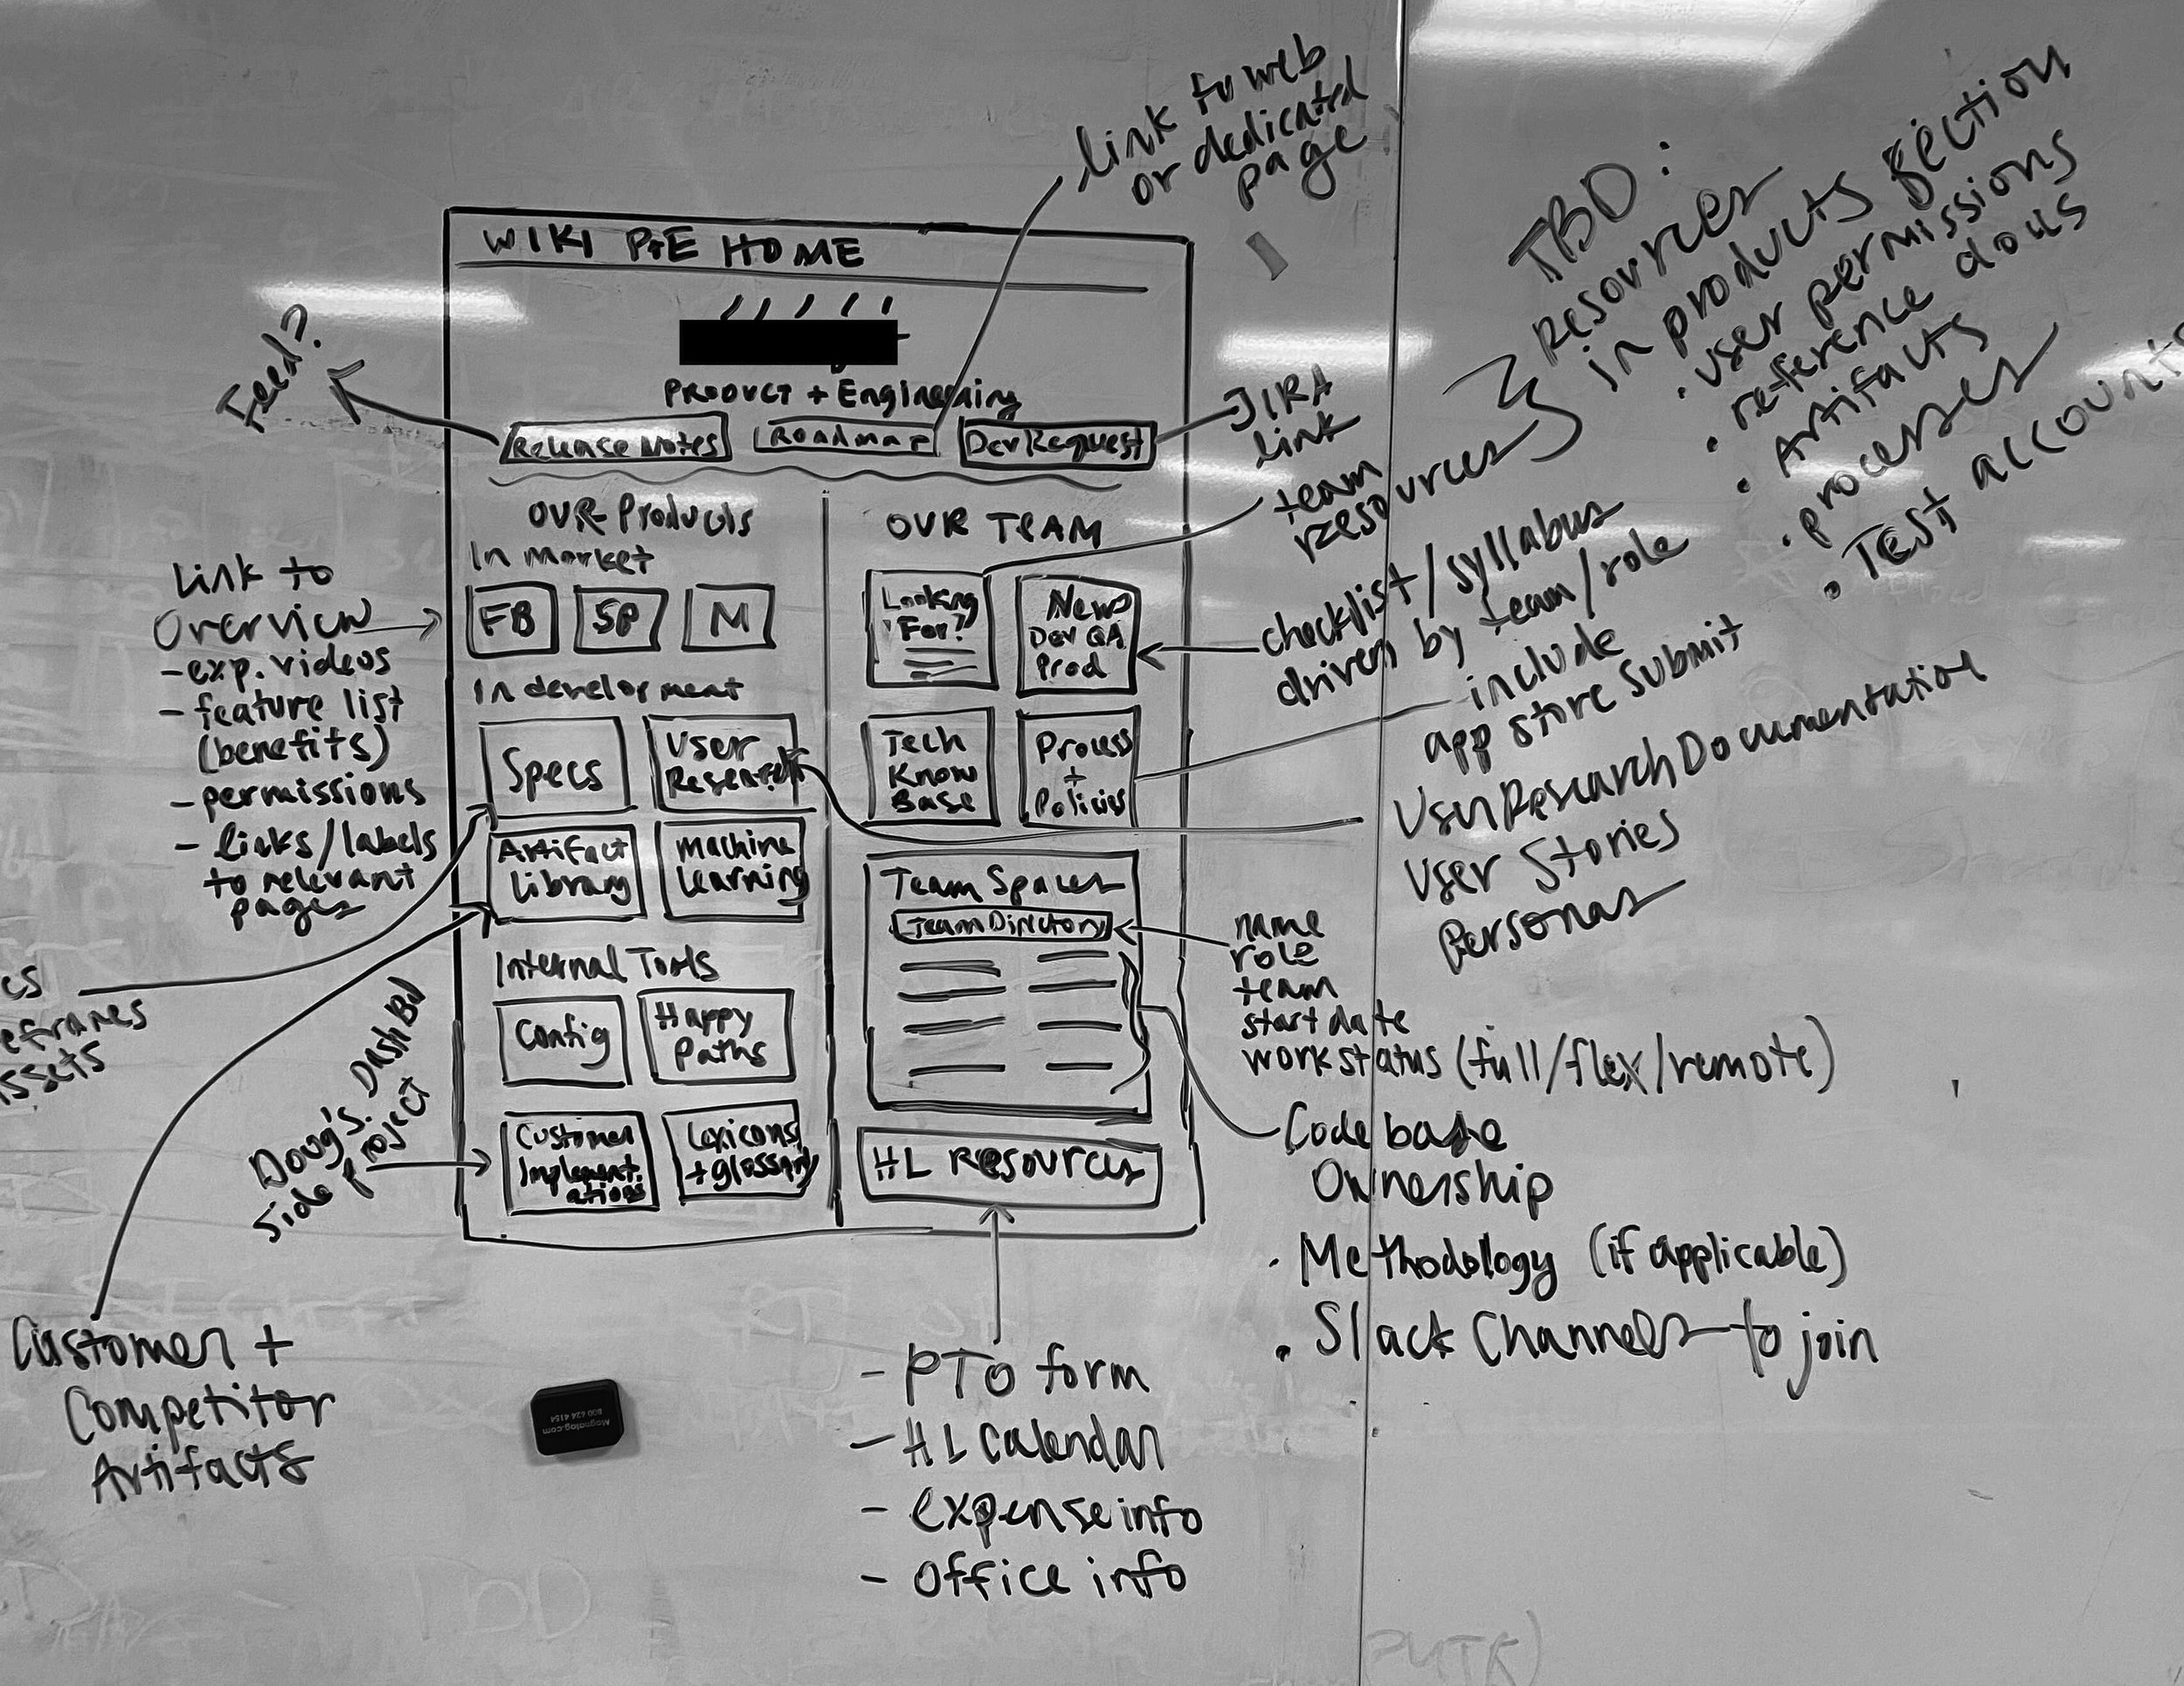 WIKI P+E HOME
PRODUCT + Engineering
Release Notes
Roadmap
Dev Request
Feed?
link to web
or dedicated
page
JIRA
link
OUR Products
In market
FB
SP
M
In development
Specs
User
Research
Artifact
Library
Machine
Learning
Internal Tools
Config
Happy
Paths
Customer
Implement
ations
Lexicons
+ glossary
OUR TEAM
Looking
For?
New
Dev QA
Prod
Tech
Know
Base
Process
+
Policies
Team Spaces
Team Directory
HL Resources
Link to
Overview
- exp. videos
- feature list
(benefits)
- permissions
- links/labels
to relevant
pages
Doug's DashBd
side project
Customer +
Competitor
Artifacts
team
resources
TBD:
resources
in products section
. user permissions
. reference docs
. Artifacts
. processes
. Test accounts
checklist/syllabus
driven by team/role
include
app store submit
User Research Documentation
User Stories
Personas
name
role
team
start date
work status (full/flex/remote)
Code base
Ownership
. Methodology (if applicable)
. Slack Channels to join
- PTO form
- HL Calendar
- expense info
- office info
Magnatag.com
800 624 4154